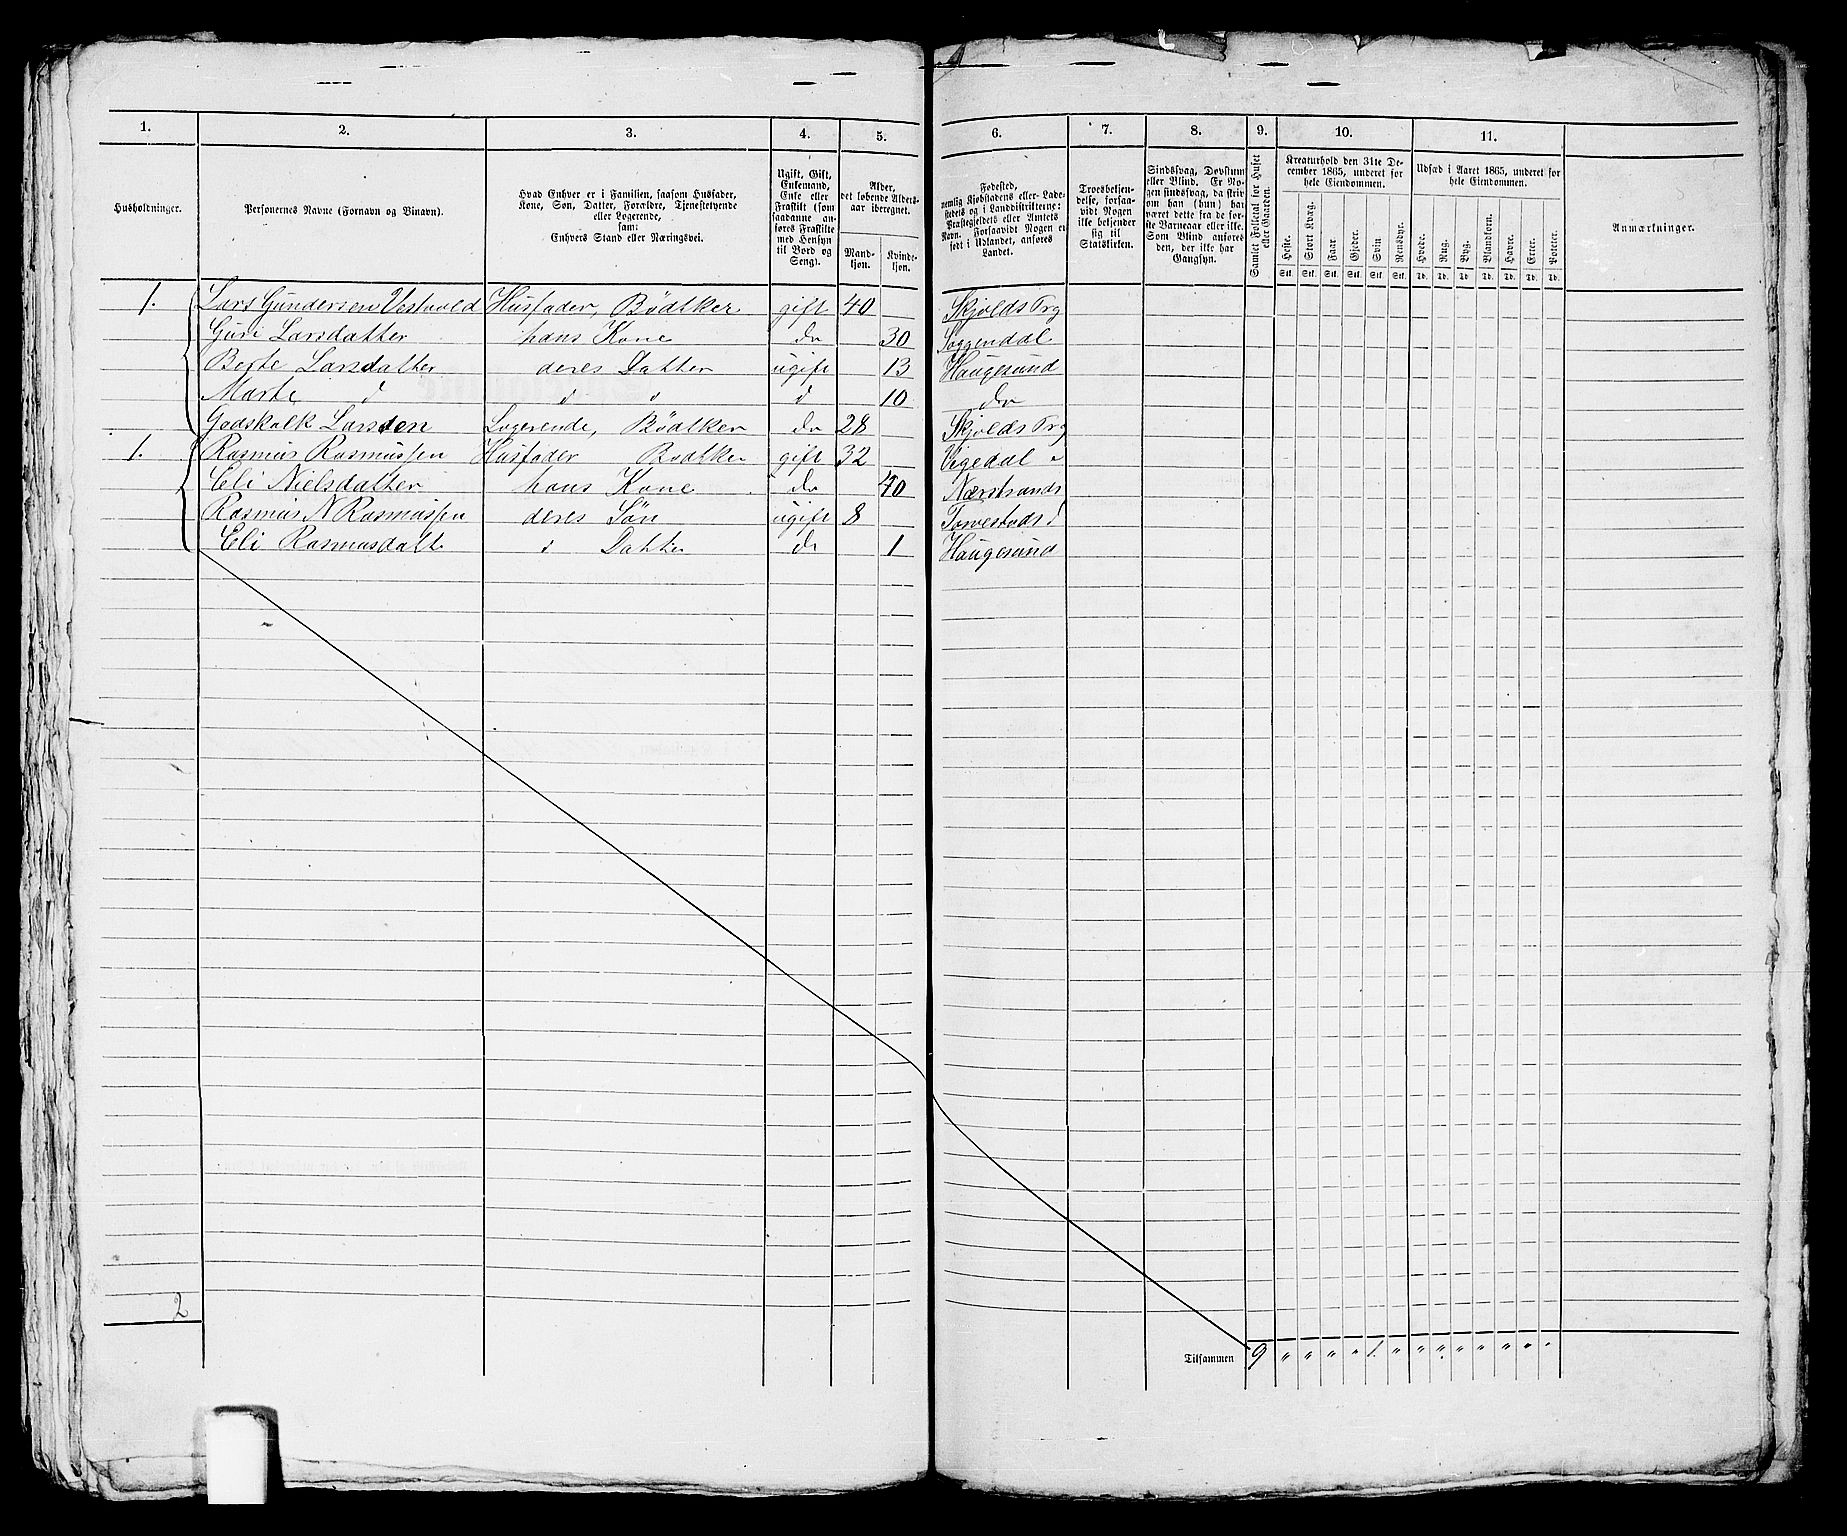 1. 2. 3. 4. 5. 6. 7. 8. 9. 10. 11.
Husholdninger.
Personernes Navne (Fornavn og Binavn).
Hvad Enhver er i Familien, saasom Husfader,
Kone, Søn, Datter, Forældre, Tjenestetyende
eller Logerende,
samt
Enhvers Stand eller Næringsvei.
Ugift, Gift,
Enkemand,
Enke eller
Fraskilt (som
saadanne an-
føres Fraskilte
med Hensyn
til Bord og
Seng).
Alder,
det løbende Alders-
aar iberegnet.
Mand-
kjøn.
Kvinde-
kjøn.
Fødested,
nemlig Kjøbstadens eller Lade-
stedets og i Landdistrikterne:
Præstegjeldets eller Amtets
Navn. Forsaavidt Nogen er
født i Udlandet, anføres
Landet.
Troesbekjen-
delse, forsaa-
vidt Nogen
ikke bekjender
sig til
Statskirken.
Sindssvag, Døvstum
eller Blind. Er No-
gen sindssvag, da skriv
om han (hun) har
været dette fra de før-
ste Barneaar eller ikke.
Som Blind anføres
den, der ikke har
Gangsyn.
Samlet Folketal for Huset
eller Gaarden.
Kreaturhold den 31te De-
cember 1865, underet for
hele Eiendommen.
Heste. Stort Kvæg. Faar. Gjeder. Svin Rensdyr.
Stk. Stk. Stk. Stk. Stk. Stk.
Udsæd i Aaret 1865, underet for
hele Eiendommen.
Hvede. Rug. Byg. Blandkorn. Havre. Erter. Poteter.
Td. Td. Td. Td. Td. Td. Td.
Anmærkninger.
1. Lars Gundersen Vestvold Husfader, Bødtker gift 40 Skjolds Prg
Guri Larsdatter hans Kone do 30 Soggendal
Berte Larsdatter deres Datter ugift 13 Haugesund
Marte d d d d 10 do
Godskalk Larssen Logerende, Bödtker do 28 Skjolds Prg
1. Rasmus Rasmussen Husfader Bödtker gift 32 Vigedal "
Eli Nielsdatter hans Kone do 40 Nærstrands
Rasmus N Rasmussen deres Sön ugift 8 Torvestads
Eli Rasmusdatt d Datter do 1 Haugesund
2
Tilsammen 9 " " " " 1. " " " " " " " "